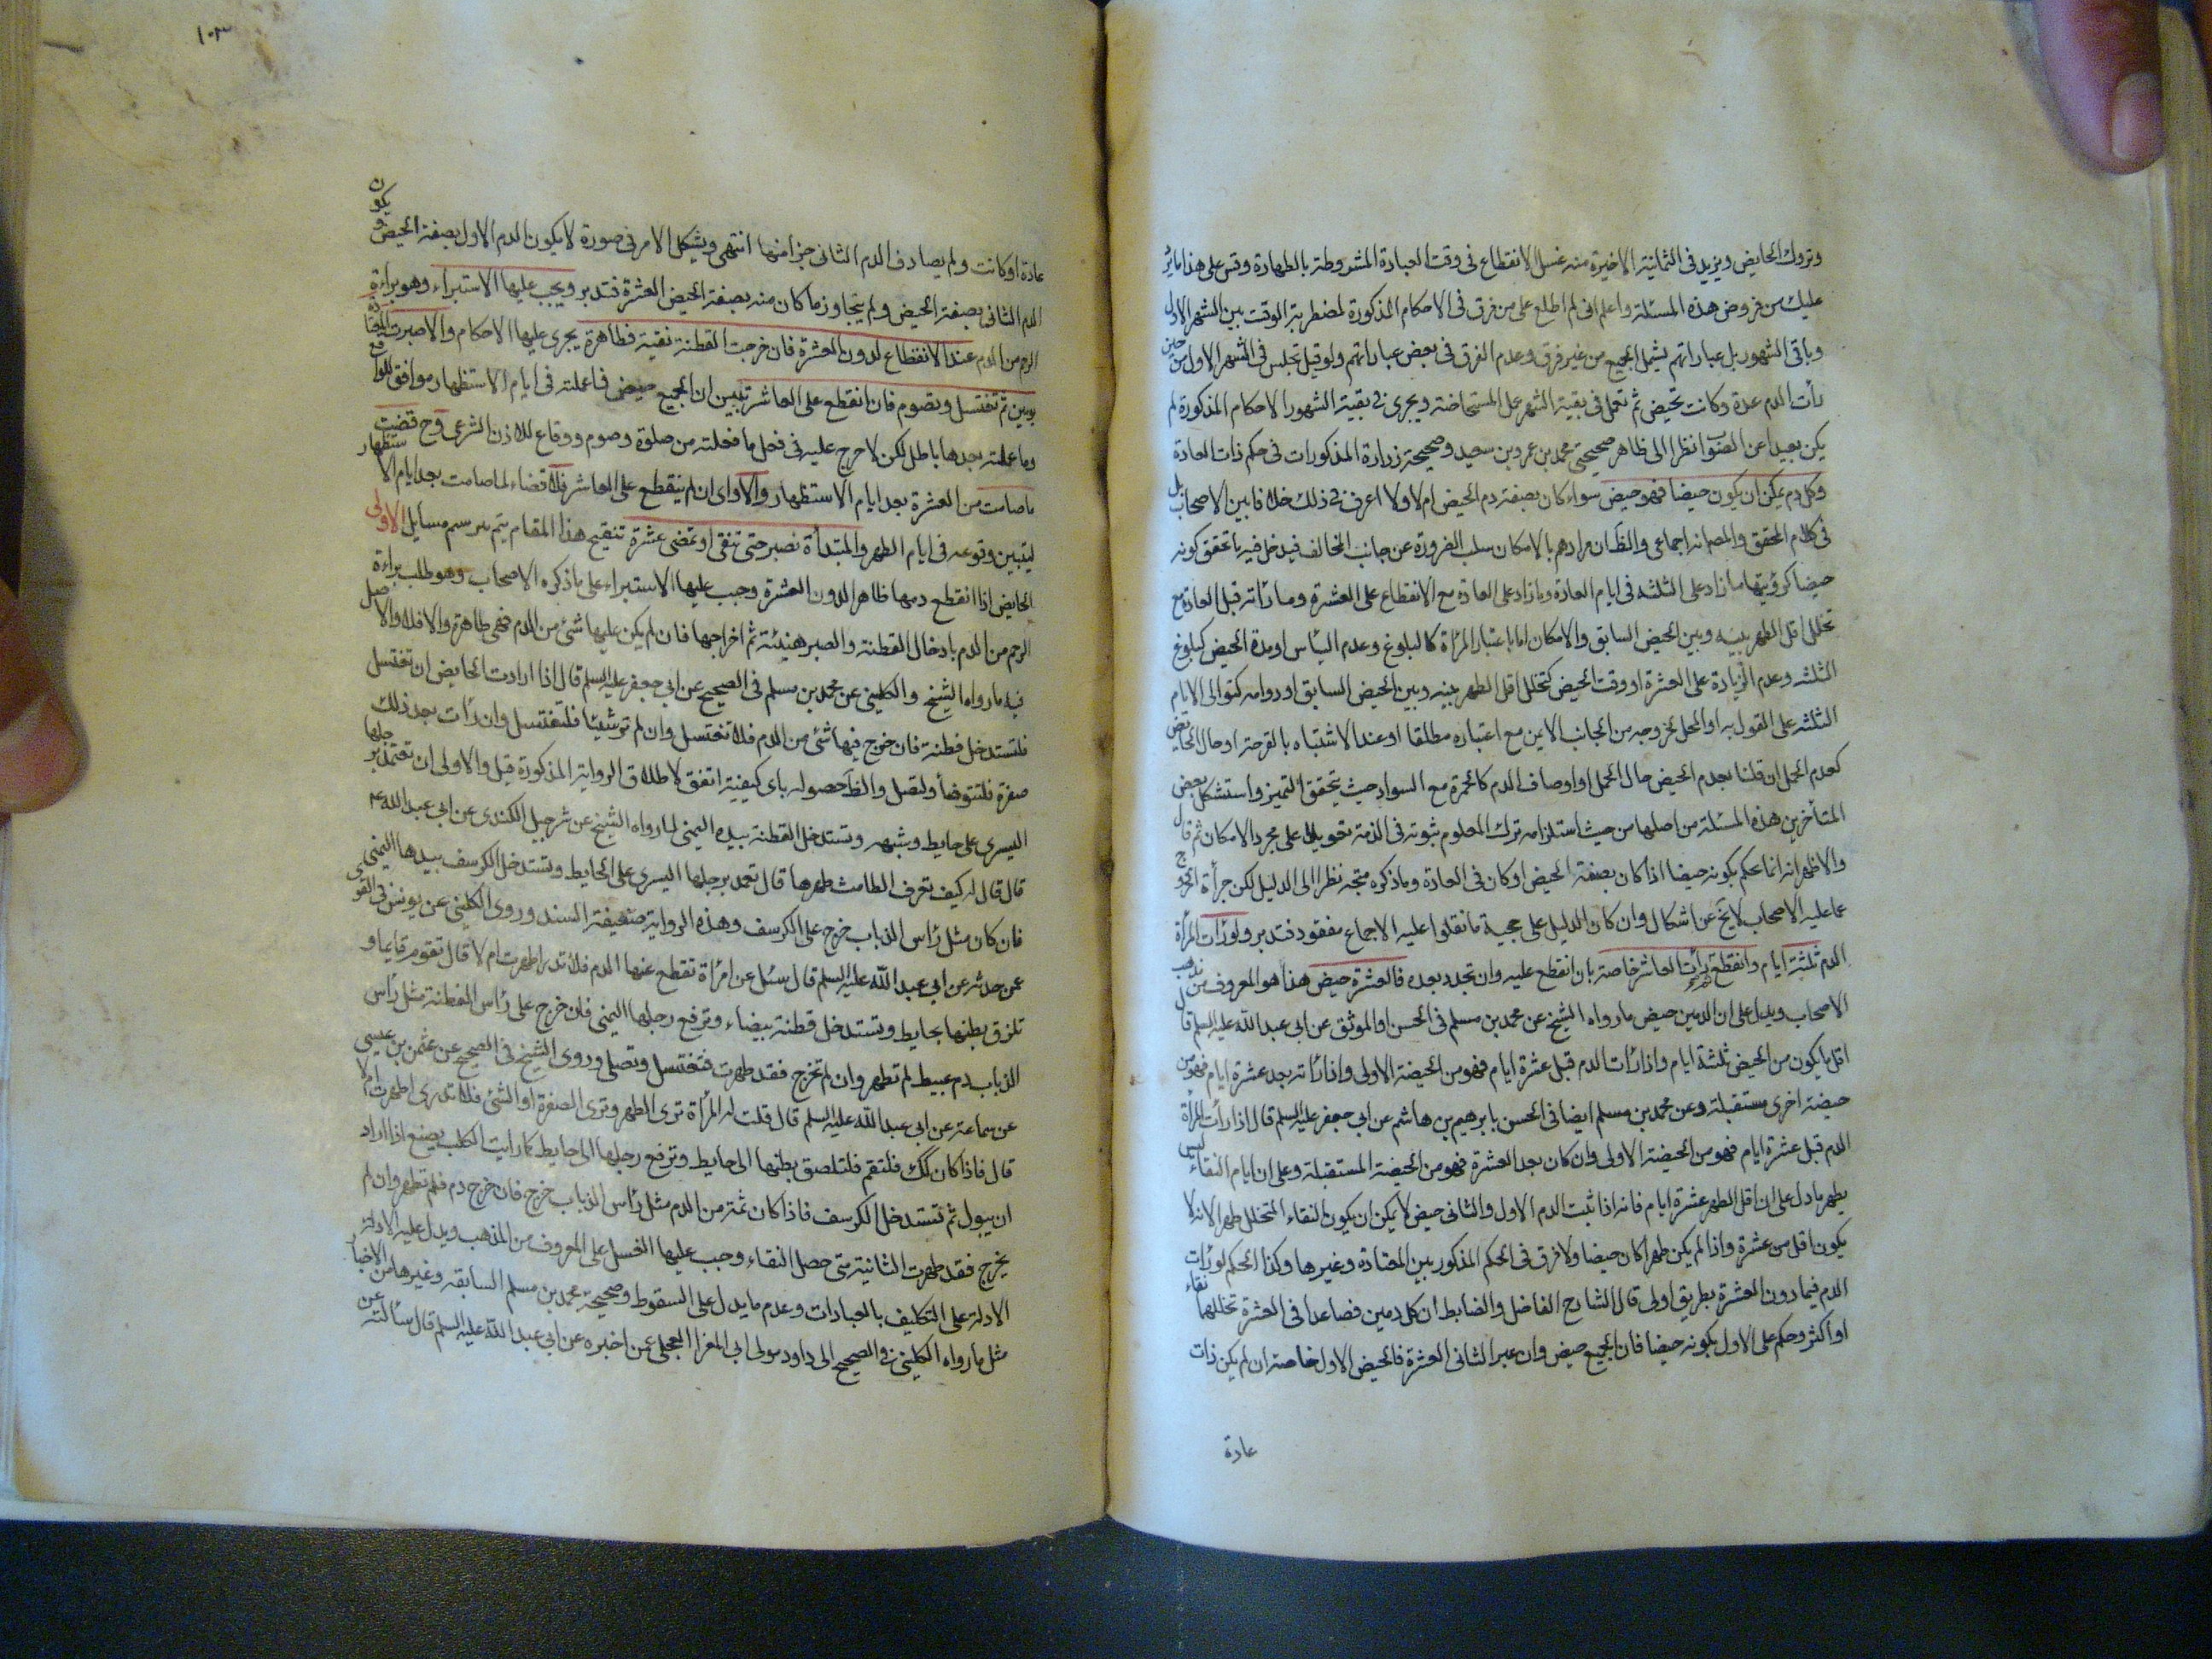 وتروك الحايض ويزيد في الثمانية الاخيرة منه غسل الانقطاع في وقت العبادة المشروطة بالطهارة وقس على هذا ما يرد
عليك من فروض هذه المسئلة واعلم انى لم اطلع على من فرق في الاحكام المذكورة لمضطربة الوقت بين الشهر الاول
وباقى الشهور بل عباراتهم يشمل الجميع من غير فرق وعدم الفرق في بعض عباراتهم ولو قيل تجلس في الشهر الاول من حين
رأت الدم عدة وكانت تحيض ثم تعمل في بقية الشهر عمل المستحاضة ويجرى في بقية الشهور الاحكام المذكورة لم
يكن بعيدا عن الصواب نظرا الى ظاهر صحيحتي محمد بن عمرو بن سعيد وصحيحة زرارة المذكورات في حكم ذات العادة
وكل دم يمكن ان يكون حيضا فهو حيض سواء كان بصفة دم الحيض ام لا ولا اعرف في ذلك خلافا بين الاصحاب بل
في كلام المحقق والمص انه اجماعى والظ ان مرادهم بالامكان سلب الضرورة عن جانب المخالف فيدخل فيه ما تحقق كونه
حيضا كرؤيتها ما زاد على الثلثة في ايام العادة وما زاد على العادة مع الانقطاع على العشرة وما رأته قبل العادة مع
تخلل اقل الطهر بينه وبين الحيض السابق والامكان اما باعتبار المرأة كالبلوغ وعدم اليأس او مدة الحيض كبلوغ
الثلثة وعدم الزيادة على العشرة او وقت الحيض كتخلل اقل الطهر بينه وبين الحيض السابق او دوامه كتوالى الايام
الثلثة على القول به او المحل كخروجه من الجانب الايمن مع اعتباره مطلقا او عند الاشتباه بالقرحة او حال الحايض
كعدم الحمل ان قلنا بعدم الحيض حال الحمل او اوصاف الدم كالحمرة مع السواد حيث يتحقق التميز واستشكل بعض
المتأخرين هذه المسئلة من اصلها من حيث استلزامه ترك المعلوم ثبوته في الذمة تعويلا على مجرد الامكان ثم قال
والاظهر انه انما يحكم بكونه حيضا اذا كان بصفة الحيض او كان في العادة وما ذكره متجه نظرا الى الدليل لكن جرأة الخروج
عما عليه الاصحاب لا يخ عن اشكال وان كان الدليل على حجية ما نقلوا عليه الاجماع مفقود فتدبر ولو رأت المرأة
الدم ثلثة ايام وانقطع رأت العاشر خاصة بان انقطع عليه وان تجدد بعده فالعشرة حيض هذا هو المعروف من مذهب
الاصحاب ويدل على ان الدمين حيض ما رواه الشيخ عن محمد بن مسلم في الحسن او الموثق عن ابى عبد الله عليه السلم قال
اقل ما يكون من الحيض ثلثة ايام واذا رأت الدم قبل عشرة ايام فهو من الحيضة الاولى واذا رأته بعد عشرة ايام فهو من
حيضة اخرى مستقبلة وعن محمد بن مسلم ايضا في الحسن بابرهيم بن هاشم عن ابى جعفر عليه السلم قال اذا رأت المرأة
الدم قبل عشرة ايام فهو من الحيضة الاولى وان كان بعد العشرة فهو من الحيضة المستقبلة وعلى ان ايام النقاء ليس
بطهر ما دل على ان اقل الطهر عشرة ايام فانه اذا ثبت الدم الاول والثانى حيض لا يمكن ان يكون النقاء المتخلل طهرا لانه لا
يكون اقل من عشرة واذا لم يكن طهرا كان حيضا ولا فرق في الحكم المذكور بين المعتادة وغيرها وكذا الحكم لو رأت
الدم فيما دون العشرة بطريق اولى قال الشارح الفاضل والضابط ان كل دمين فصاعدا في العشرة تخللهما نقاء
او اكثر وحكم على الاول بكونه حيضا فان الجميع حيض وان عبر الثانى العشرة فالحيض الاول خاصة ان لم يكن ذات
عادة
١٠٣
عادة او كانت ولم يصادف الدم الثانى جزأ منها انتهى ويشكل الامر في صورة لا يكون الدم الاول بصفة الحيض ويكون
الدم الثانى بصفة الحيض ولم يتجاوز ما كان منه بصفة الحيض العشرة فتدبر ويجب عليها الاستبراء وهو براءة
الرحم من الدم عند الانقطاع لدون العشرة فان خرجت القطنة نقية فطاهرة يجرى عليها الاحكام والا صبرت المعتادة
يومين ثم تغتسل وتصوم فان انقطع على العاشر تبين ان الجميع حيض فما عملته في ايام الاستظهار موافق للواقع
وما عملته بعدها باطل لكن لا حرج عليه في فعل ما فعلته من صلوة وصوم ووقاع للاذن الشرعى وح قضيت
ما صامت من العشرة بعد ايام الاستظهار والا اى ان لم ينقطع على العاشر فلا قضاء لما صامت بعد ايام الاستظهار
ليتبين وقوعه في ايام الطهر والمبتدأة تصبر حتى تنقى او تمضى عشرة تنقيح هذا المقام يتم برسم مسايل الاولى
الحايض اذا انقطع دمها ظاهر الدون العشرة وجب عليها الاستبراء على ما ذكره الاصحاب وهو طلب براءة
الرحم من الدم بادخال القطنة والصبر هنيئة ثم اخراجها فان لم يكن عليها شئ من الدم فهى طاهرة والا فلا والاصل
فيه ما رواه الشيخ والكلينى عن محمد بن مسلم في الصحيح عن ابى جعفر عليه السلم قال اذا ارادت الحايض ان تغتسل
فلتستدخل قطنة فان خرج فيها شئ من الدم فلا تغتسل وان لم تر شيئا فلتغتسل وان رأت بعد ذلك
صفرة فلتتوضأ ولتصل والظ حصوله باى كيفية اتفق لاطلاق الرواية المذكورة قيل والاولى ان تعتمد برجلها
اليسرى على حايط وشبهه وتستدخل القطنة بيده اليمنى لما رواه الشيخ عن شرحبيل الكندى عن ابى عبد الله ع
قال قال له كيف تعرف الطامث طهرها قال تعمد برجلها اليسرى على الحايط وتستدخل الكرسف بيدها اليمنى
فان كان مثل رأس الذباب خرج على الكرسف وهذه الرواية ضعيفة السند وروى الكلينى عن يونس في القوى
عن حدثه عن ابى عبد الله عليه السلم قال سئل عن امرأة تقطع عنها الدم فلا تدر اطهرت ام لا قال تقوم قايما و
تلزق بطنها بحايط وتستدخل قطنة بيضاء وترفع رجلها اليمنى فان خرج على رأس القطنة مثل رأس
الذباب دم عبيط لم تطهر وان لم تخرج فقد طهرت فتغتسل وتصلى وروى الشيخ في الصحيح عن عثمن بن عيسى
عن سماعة عن ابى عبد الله عليه السلم قال قلت له المرأة ترى الطهر وترى الصفرة او الشئ فلا تدرى اطهرت ام لا
قال فاذا كان كك فلتقم فلتلصق بطنها الى حايط وترفع رجلها الى حايط كما رأيت الكلب يصنع اذا اراد
ان يبول ثم تستدخل الكرسف فاذا كان ثمة من الدم مثل رأس الذباب خرج فان خرج دم فلم تطهر وان لم
يخرج فقد طهرت الثانية متى حصل النقاء وجب عليها الغسل على المعروف من المذهب ويدل عليه الادلة
الادلة على التكليف بالعبادات وعدم ما يدل على السقوط وصحيحة محمد بن مسلم السابقة وغيرها من الاخبار
مثل ما رواه الكلينى في الصحيح الى داود مولى ابى المغرا العجلى عمن اخبره عن ابى عبد الله عليه السلم قال سألته عن